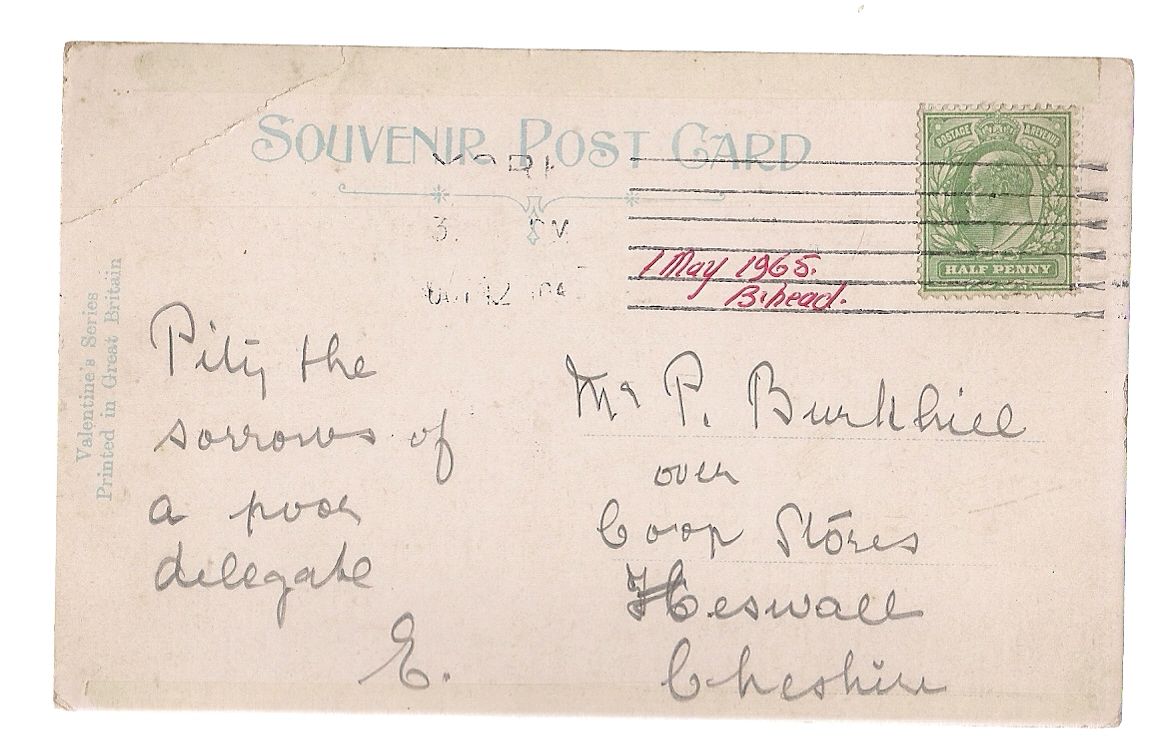 SOUVENIR POST CARD
POSTAGE & REVENUE
HALF PENNY
3. PM
OCT 12
1 May 1965.
B.head.
Valentine's Series
Printed in Great Britain
Pity the
sorrows of
a poor
delegate
E.
Mr P. Burkhill
over
Coop Stores
Heswall
Cheshire